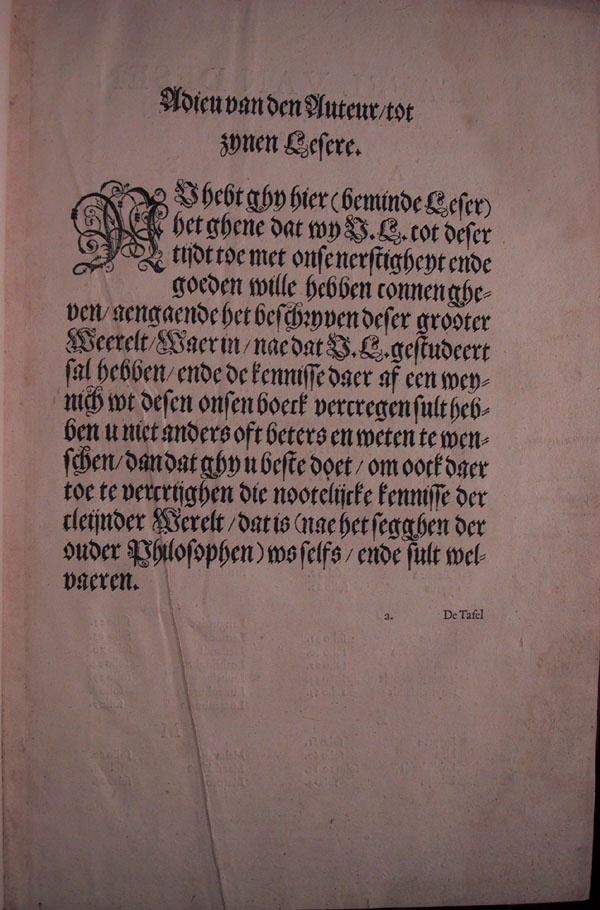 Adieu van den Auteur/tot
zynen Leſere.
NV hebt ghy hier (beminde Leſer)
het ghene dat wy V. L. tot deſer
tijdt toe met onſe nerſtigheyt ende
goeden wille hebben connen ghe-
ven/ aengaende het beſchryven deſer grooter
Weerelt/Waer in/ nae dat V. L. geſtudeert
ſal hebben/ ende de kenniſſe daer af een wey-
nich wt deſen onſen boeck vercregen ſult heb-
ben u niet anders oft beters en weten te wen-
ſchen/dan dat ghy u beſte doet/ om oock daer
toe te vercrijghen die nootelijcke kenniſſe der
cleijnder Werelt/dat is (nae het ſegghen der
ouder Philoſophen) ws ſelfs/ ende ſult wel-
vaeren.
2. De Tafel